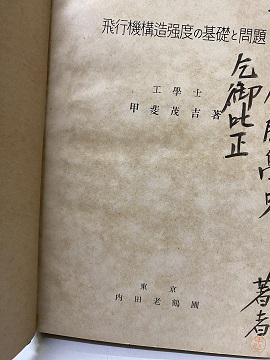 飛行機構造强度の基礎と問題
工學士
甲斐茂吉著
乞御叱正
著者
東京
内田老鶴圃